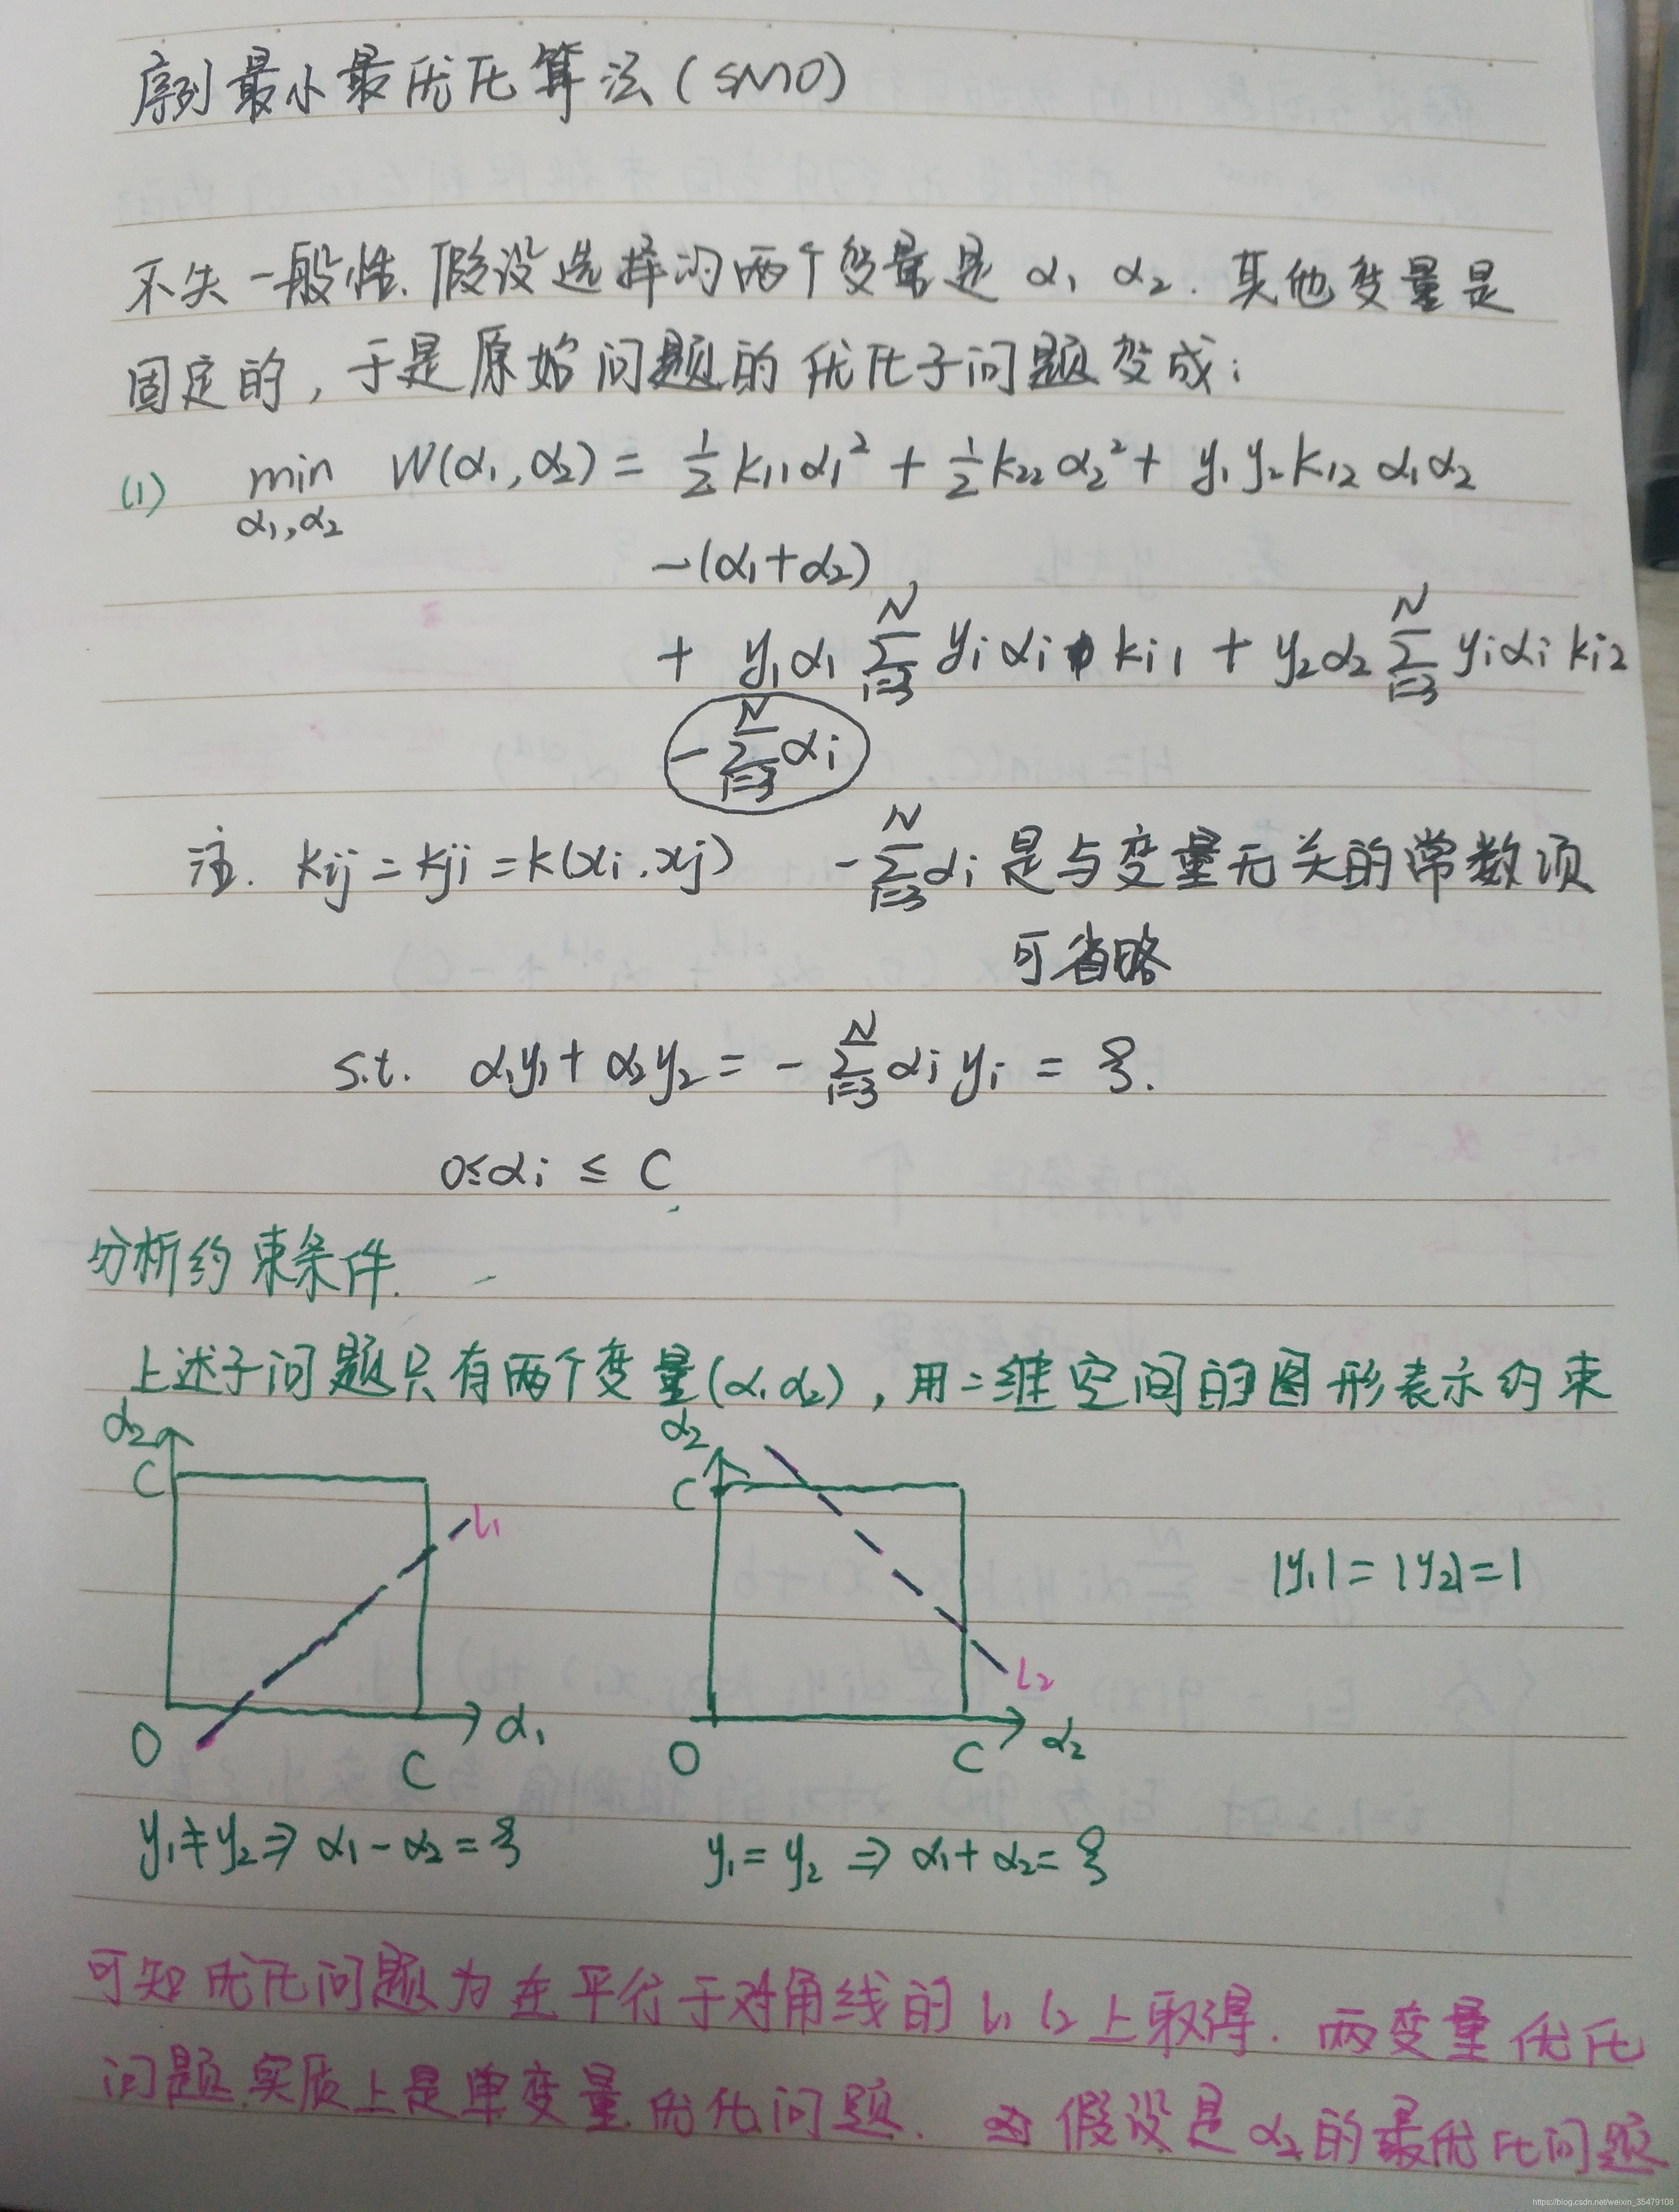 序列最小最优化算法(SMO)
不失一般性.假设选择的两个变量是 α₁ α₂. 其他变量是
固定的,于是原始问题的优化子问题变成:
(1) min W(α₁,α₂) = ½ K₁₁α₁² + ½ K₂₂ α₂² + y₁ y₂ K₁₂ α₁α₂
α₁,α₂
-(α₁+α₂)
+ y₁α₁ ∑ᵢ₌₃ᴺ yᵢ αᵢ Kᵢ₁ + y₂α₂ ∑ᵢ₌₃ᴺ yᵢαᵢ Kᵢ₂
- ∑ᵢ₌₃ᴺ αᵢ
注. Kij = Kji = K(xi.xj) - ∑ᵢ₌₃ᴺ αᵢ 是与变量无关的常数项
可省略
s.t. α₁y₁ + α₂y₂ = - ∑ᵢ₌₃ᴺ αᵢ yᵢ = ξ.
0≤αᵢ ≤ C
分析约束条件.
上述子问题只有两个变量(α₁ α₂),用二维空间的图形表示约束
α₂ α₂
C C
L₁
|y₁| = |y₂| = 1
L₂
O C α₁ O C α₂
y₁≠y₂ ⇒ α₁ - α₂ = ξ y₁ = y₂ ⇒ α₁ + α₂ = ξ
可知优化问题为在平行于对角线的 L₁ L₂ 上取得. 两变量优化
问题.实质上是单变量优化问题. 假设是α₂的最优化问题
https://blog.csdn.net/weixin_35479108